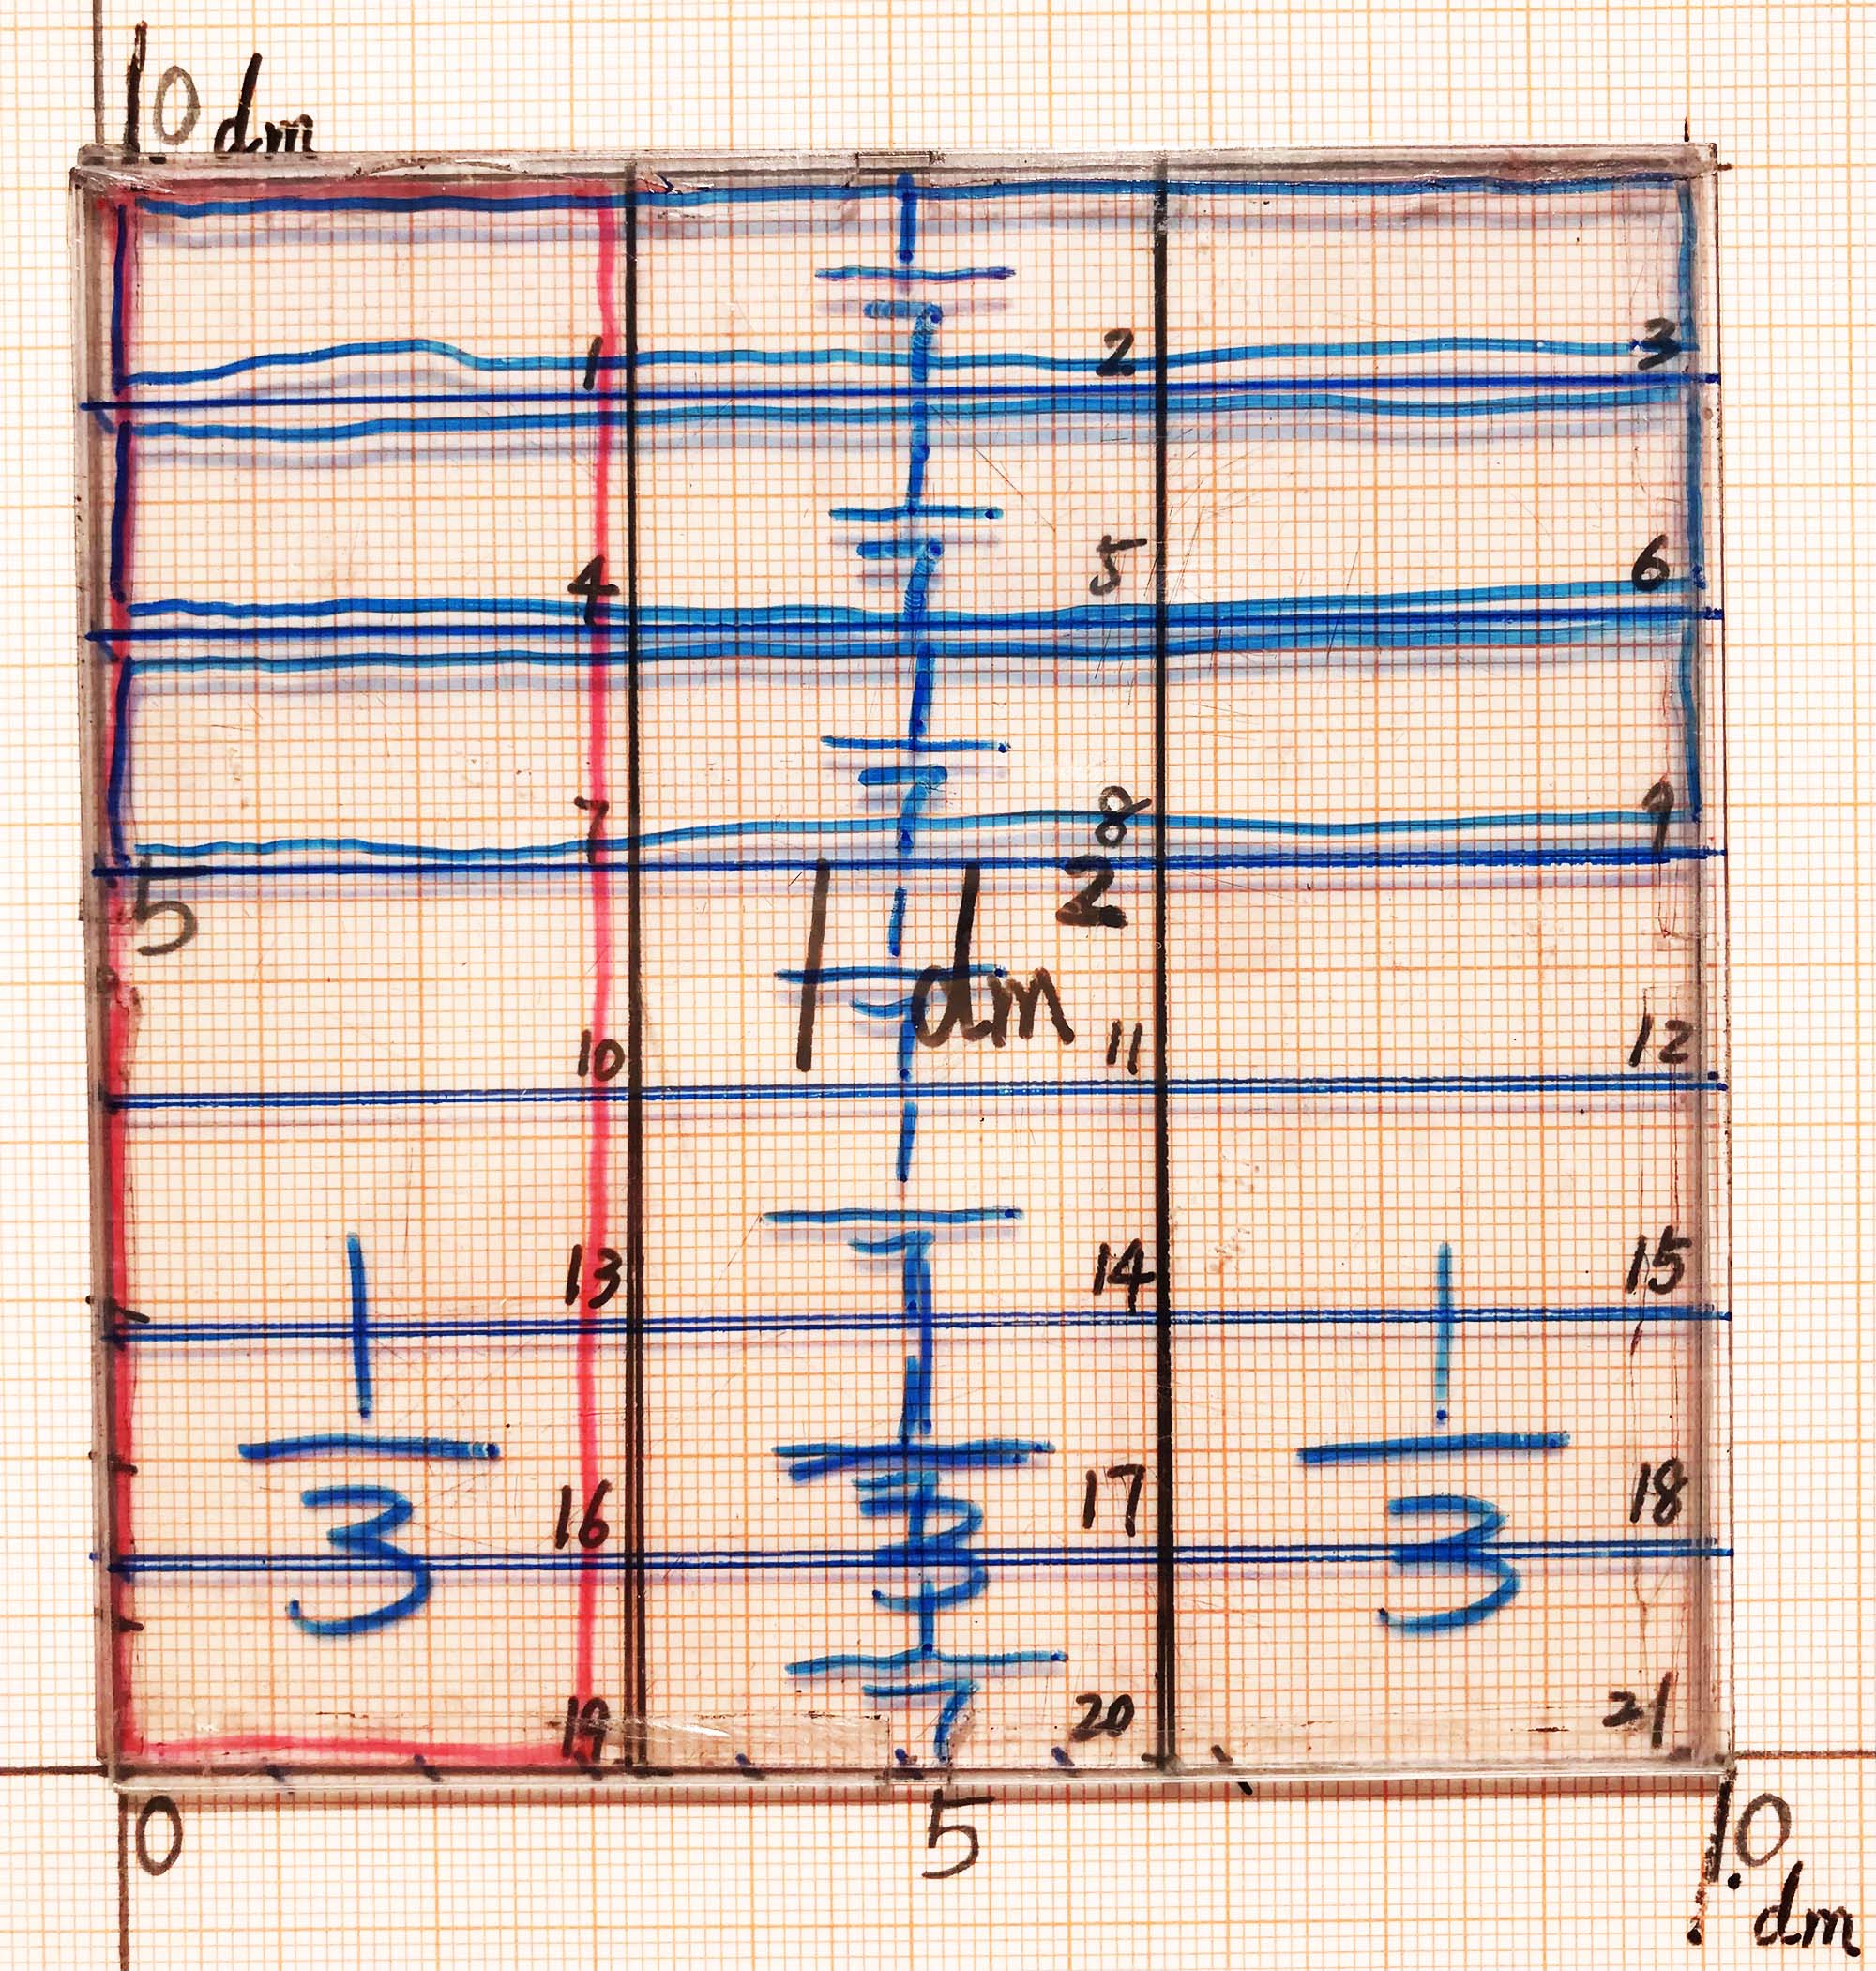 10 dm
1
7
1 2 3
1
7
4 5 6
1
7
7 8 9
5
1 dm 2
1
7
10 11 12
1
7
13 14 15
1 1 1
3 3 3
7
16 17 18
1
7
19 20 21
0 5 10
dm